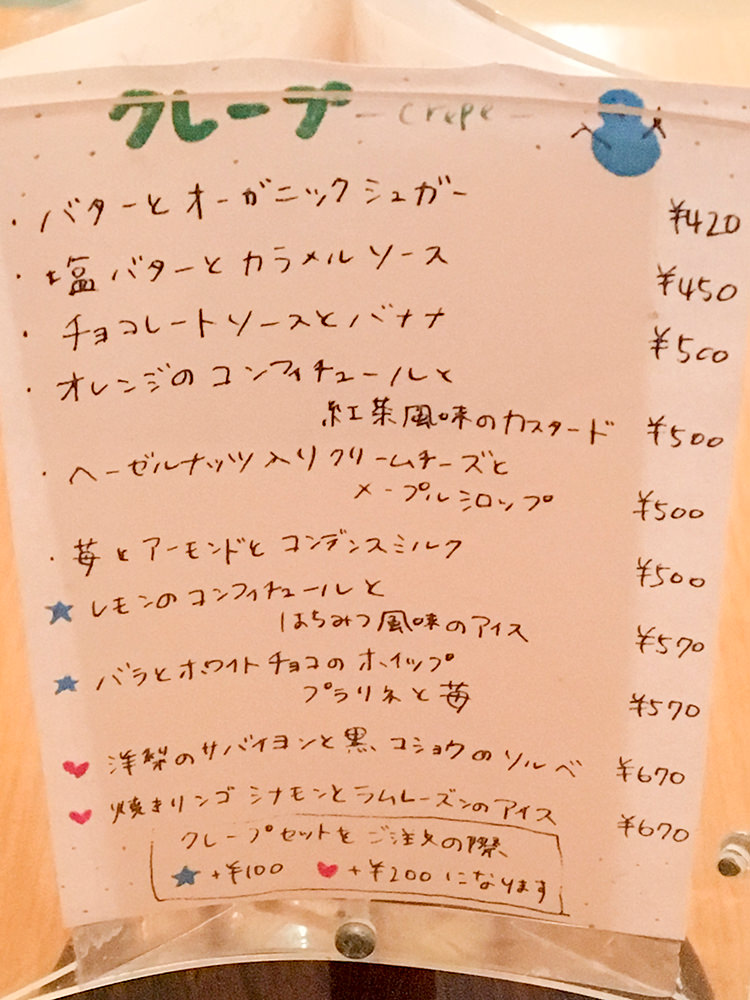 クレープ -crepe-
・バターとオーガニックシュガー ¥420
・塩バターとカラメルソース ¥450
・チョコレートソースとバナナ ¥500
・オレンジのコンフィチュールと
紅茶風味のカスタード ¥500
・ヘーゼルナッツ入りクリームチーズと
メープルシロップ ¥500
・苺とアーモンドとコンデンスミルク ¥500
★ レモンのコンフィチュールと
はちみつ風味のアイス ¥570
★ バラとホワイトチョコのホイップ
プラリネと苺 ¥570
♥ 洋梨のサバイヨンと黒コショウのソルベ ¥670
♥ 焼きリンゴ シナモンとラムレーズンのアイス ¥670
クレープセットをご注文の際、
★+¥100 ♥+¥200になります